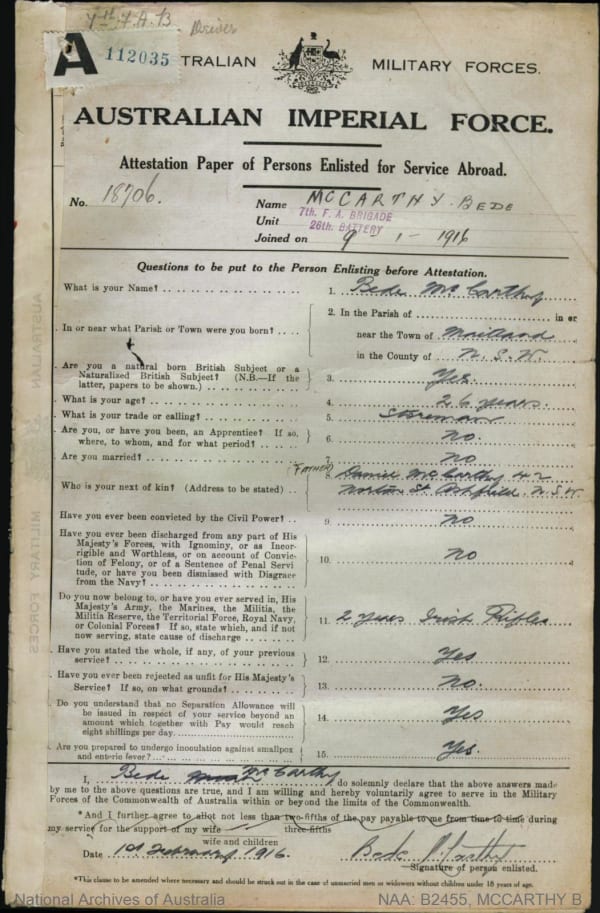 7th F. A. B Driver
A 112035 TRALIAN MILITARY FORCES.
AUSTRALIAN IMPERIAL FORCE.
Attestation Paper of Persons Enlisted for Service Abroad.
No. 18706. Name MCCARTHY. BEDE
Unit 7th. F. A. BRIGADE
26th. BATTERY
Joined on 9-1-1916
Questions to be put to the Person Enlisting before Attestation.
What is your Name? 1. Bede McCarthy
2. In the Parish of in or
In or near what Parish or Town were you born? near the Town of Maitland
in the County of N.S.W.
Are you a natural born British Subject or a
Naturalized British Subject? (N.B.—If the
latter, papers to be shown.) 3. Yes
What is your age? 4. 26 years.
What is your trade or calling? 5. Storeman
Are you, or have you been, an Apprentice? If so,
where, to whom, and for what period? 6. No.
Are you married? 7. No
(FATHER) 8. Daniel McCarthy 42
Who is your next of kin? (Address to be stated) Norton St Ashfield. N.S.W.
Have you ever been convicted by the Civil Power? 9. No
Have you ever been discharged from any part of His
Majesty's Forces, with Ignominy, or as Incor-
rigible and Worthless, or on account of Convic-
tion of Felony, or of a Sentence of Penal Servi-
tude, or have you been dismissed with Disgrace
from the Navy? 10. No
Do you now belong to, or have you ever served in, His
Majesty's Army, the Marines, the Militia, the
Militia Reserve, the Territorial Force, Royal Navy,
or Colonial Forces? If so, state which, and if not
now serving, state cause of discharge 11. 2 years Irish Rifles
Have you stated the whole, if any, of your previous
service? 12. Yes
Have you ever been rejected as unfit for His Majesty's
Service? If so, on what grounds? 13. No.
Do you understand that no Separation Allowance will
be issued in respect of your service beyond an
amount which together with Pay would reach
eight shillings per day. 14. Yes
Are you prepared to undergo inoculation against smallpox
and enteric fever? 15. Yes.
I, Bede McCarthy do solemnly declare that the above answers made
by me to the above questions are true, and I am willing and hereby voluntarily agree to serve in the Military
Forces of the Commonwealth of Australia within or beyond the limits of the Commonwealth.
*And I further agree to allot not less than two-fifths of the pay payable to me from time to time during
my service for the support of my wife three-fifths
wife and children
Date 1st February 1916. Bede McCarthy
Signature of person enlisted.
*This clause to be amended where necessary and should be struck out in the case of unmarried men or widowers without children under 18 years of age.
AUSTRALIAN MILITARY FORCES
National Archives of Australia NAA: B2455, MCCARTHY B